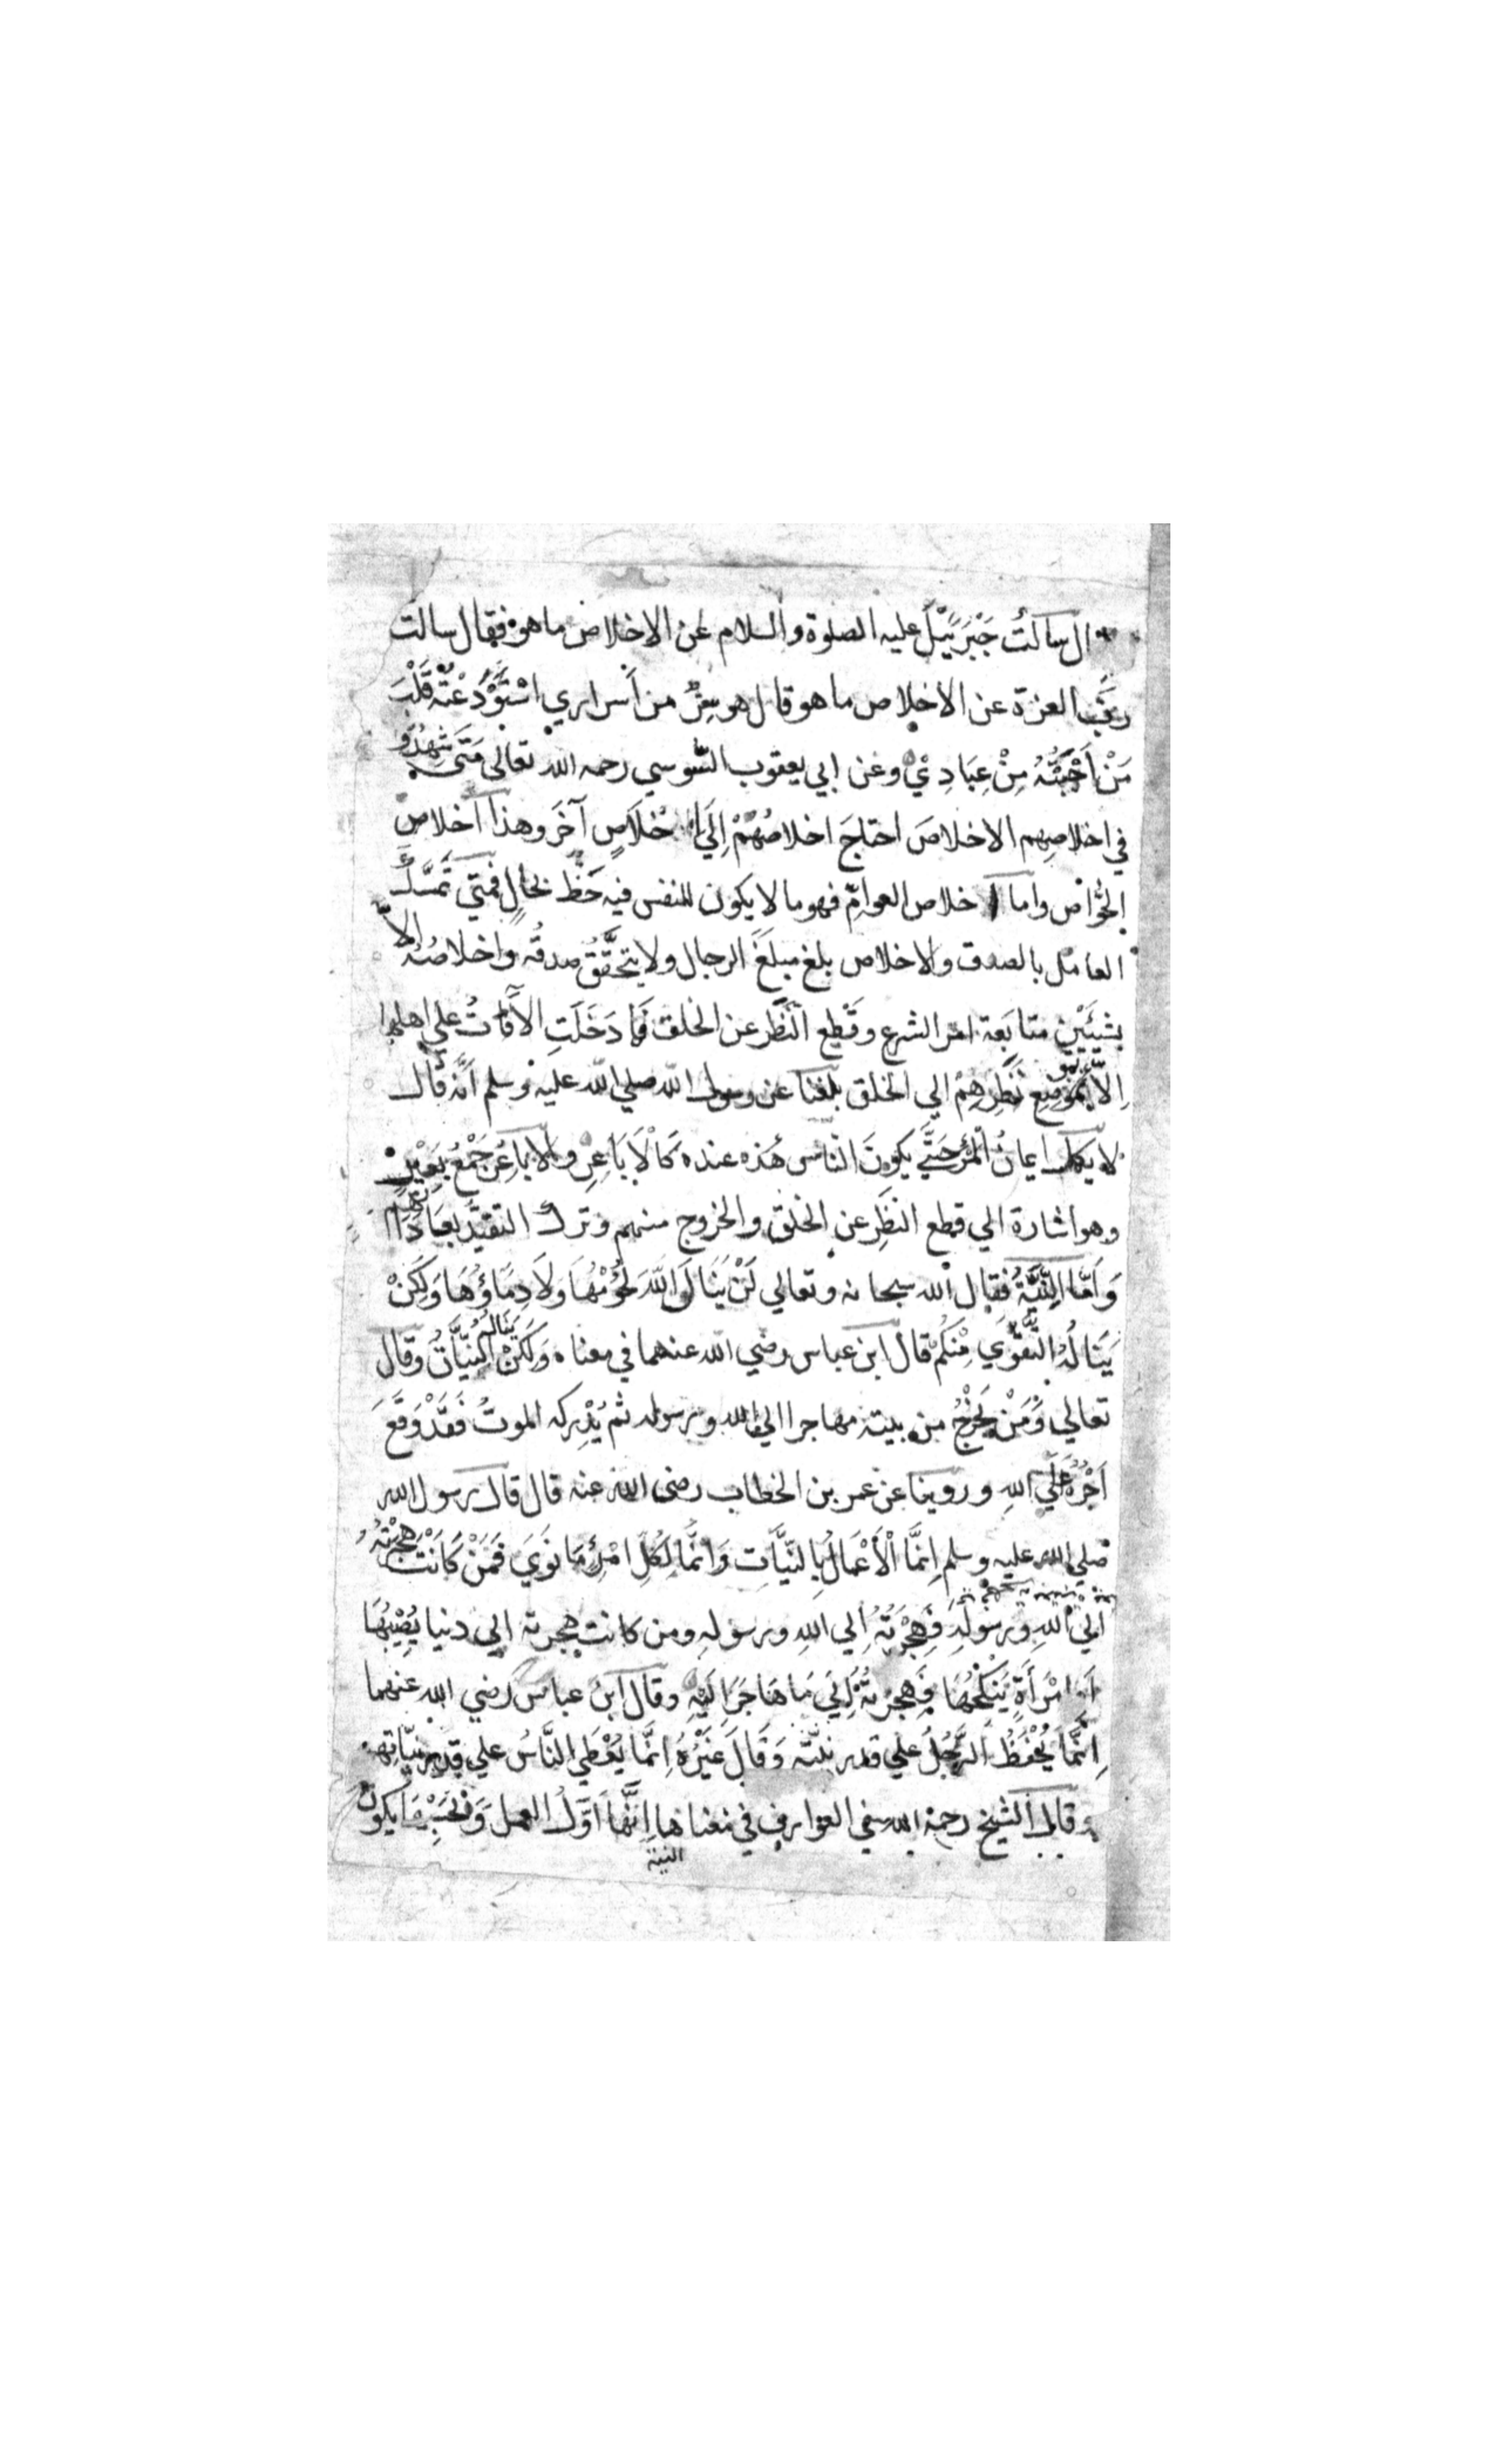 قال سالتُ جَبْرَئِيْلَ عليه الصلوة والسلام عن الاخلاص ما هو فقال سالت
ربَّ العزة عن الاخلاص ما هو قال هو سِرٌّ من أسراري اسْتَوْدَعْتُهُ قَلْبَ
مَنْ أَحْبَبْتُهُ مِنْ عِبَادِيْ وعن ابي يعقوب السُّوسي رحمه الله تعالى مَتَى شَهِدُوا
في اخلاصِهم الاخلاصَ احتاجَ اخلاصُهُمْ إِلَى اخْلَاصٍ آخَرَ وهذا اخلاص
الخواصّ واما اخلاص العوامّ فهو ما لا يكون للنفس فيه حَظٌّ بحالٍ فمتي تَمَسَّكَ
العامل بالصدق والاخلاص بلغ مبلغَ الرجال ولا يتحَقَّقُ صدقُه واخلاصُه الاّ
بشيئَيْنِ متابَعة امر الشرع وقَطْع النَّظَر عن الخلق فما دَخَلَتِ الآفاتُ علي اهلها
اِلاَّ بموضِعِ نَظَرِهِمْ الي الخلق بلغنا عن رسول الله صلي الله عليه وسلم انّه قال
لا يكمل ايمانُ المَرْءِ حَتَّي يكونَ الناس عنده كَالْأَبَاعِرِ والاباعِرُ جَمْعُ بَعِيْرٍ
وهو اشارة الي قطع النظَرِ عن الخلق والخروج منهم وترك التقيّد بعَادَاتهم
وَاَمَّا النِّيَّةُ فقال الله سبحانه وتعالي لَنْ يَنَالَ اللهَ لُحُوْمُهَا وَلَا دِمَاؤُهَا وَلكِنْ
يَنَالُهُ التَّقْوَي مِنْكُمْ قال ابن عباس رضي الله عنهما في معناه وَلَكِنْ يَنَالُهُ النِّيَّاتُ وقال
تعالي وَمَنْ يَخْرُجْ من بيته مهاجرا الي الله ورسوله ثم يُدْرِكه الموتُ فَقَدْ وَقَعَ
اَجْرُهُ عَلَي اللهِ وروينا عن عمر بن الخطاب رضى الله عنه قال قال رسول الله
صلي الله عليه وسلم اِنَّمَا الْأَعْمَالُ بِالنِّيَّاتِ وَاِنَّمَا لِكُلِّ امْرِئٍ مَا نَوَي فَمَنْ كَانَتْ هِجْرَتُهُ
اِلَي اللهِ ورسولِهِ فَهِجْرَتُهُ اِلي اللهِ ورسولِهِ ومن كانت هجرته الي دنيا يُصِيْبُهَا
اَوِ امْرَأَةٍ يَنْكِحُهَا فَهِجْرَتُهُ اِلَي مَا هَاجَرَ اِلَيْهِ وقال ابن عباس رضي الله عنهما
اِنَّمَا يُحْفَظُ الرَّجُلُ علي قدر نيّته وَقَالَ غَيْرُهُ اِنَّمَا يُعْطَي النَّاسُ علي قدر نيّاتهم
وقال الشيخ رحمه الله في العوارف في معناها اِنَّهَا اَوَّلُ العمل وَبِحَسْبِهَا يكون
النية